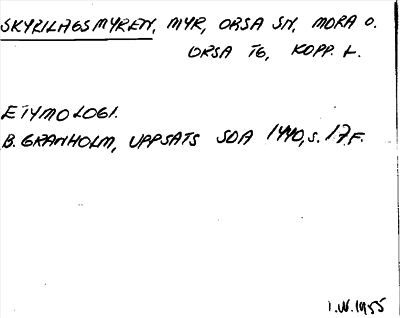 SKYRILAGSMYREN, MYR, ORSA SN, MORA O.
ORSA TG, KOPP. L.
ETYMOLOGI.
B. GRANHOLM, UPPSATS SOA 1940, S. 17 F.
I.W. 1955